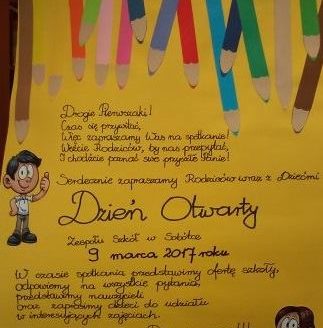 Drogie Pierwszaki!
Czas się przywitać,
Więc zapraszamy Was na spotkanie!
Weźcie Rodziców, by nas przepytać,
I chodźcie poznać swe przyszłe Panie!
Serdecznie zapraszamy Rodziców wraz z Dziećmi
Dzień Otwarty
Zespołu Szkół w Sobótce
9 marca 2017 roku
W czasie spotkania przedstawimy ofertę szkoły,
odpowiemy na wszystkie pytania,
przedstawimy nauczycieli
oraz zaprosimy dzieci do udziału
w interesujących zajęciach.